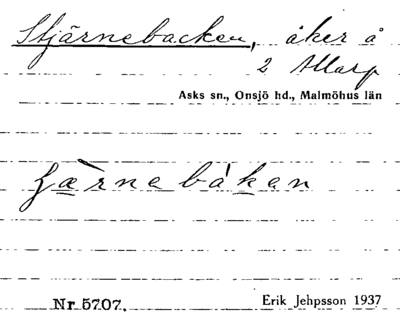 Stjärnebacken, åker å
2 Allarp
Asks sn., Onsjö hd., Malmöhus län
Nr 5707.
Erik Jehpsson 1937